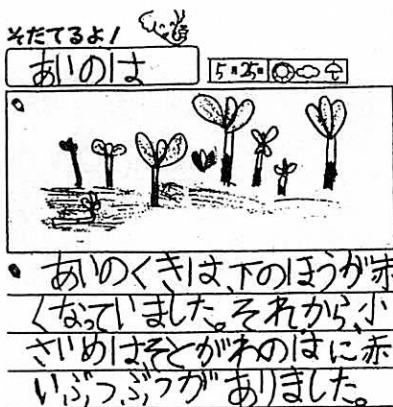 そだてるよ!
あいのは
5月25日
あいのくきは、下のほうが赤
くなっていました。それから、小
さいめはそとがわのはに赤
いぶつぶつがありました。